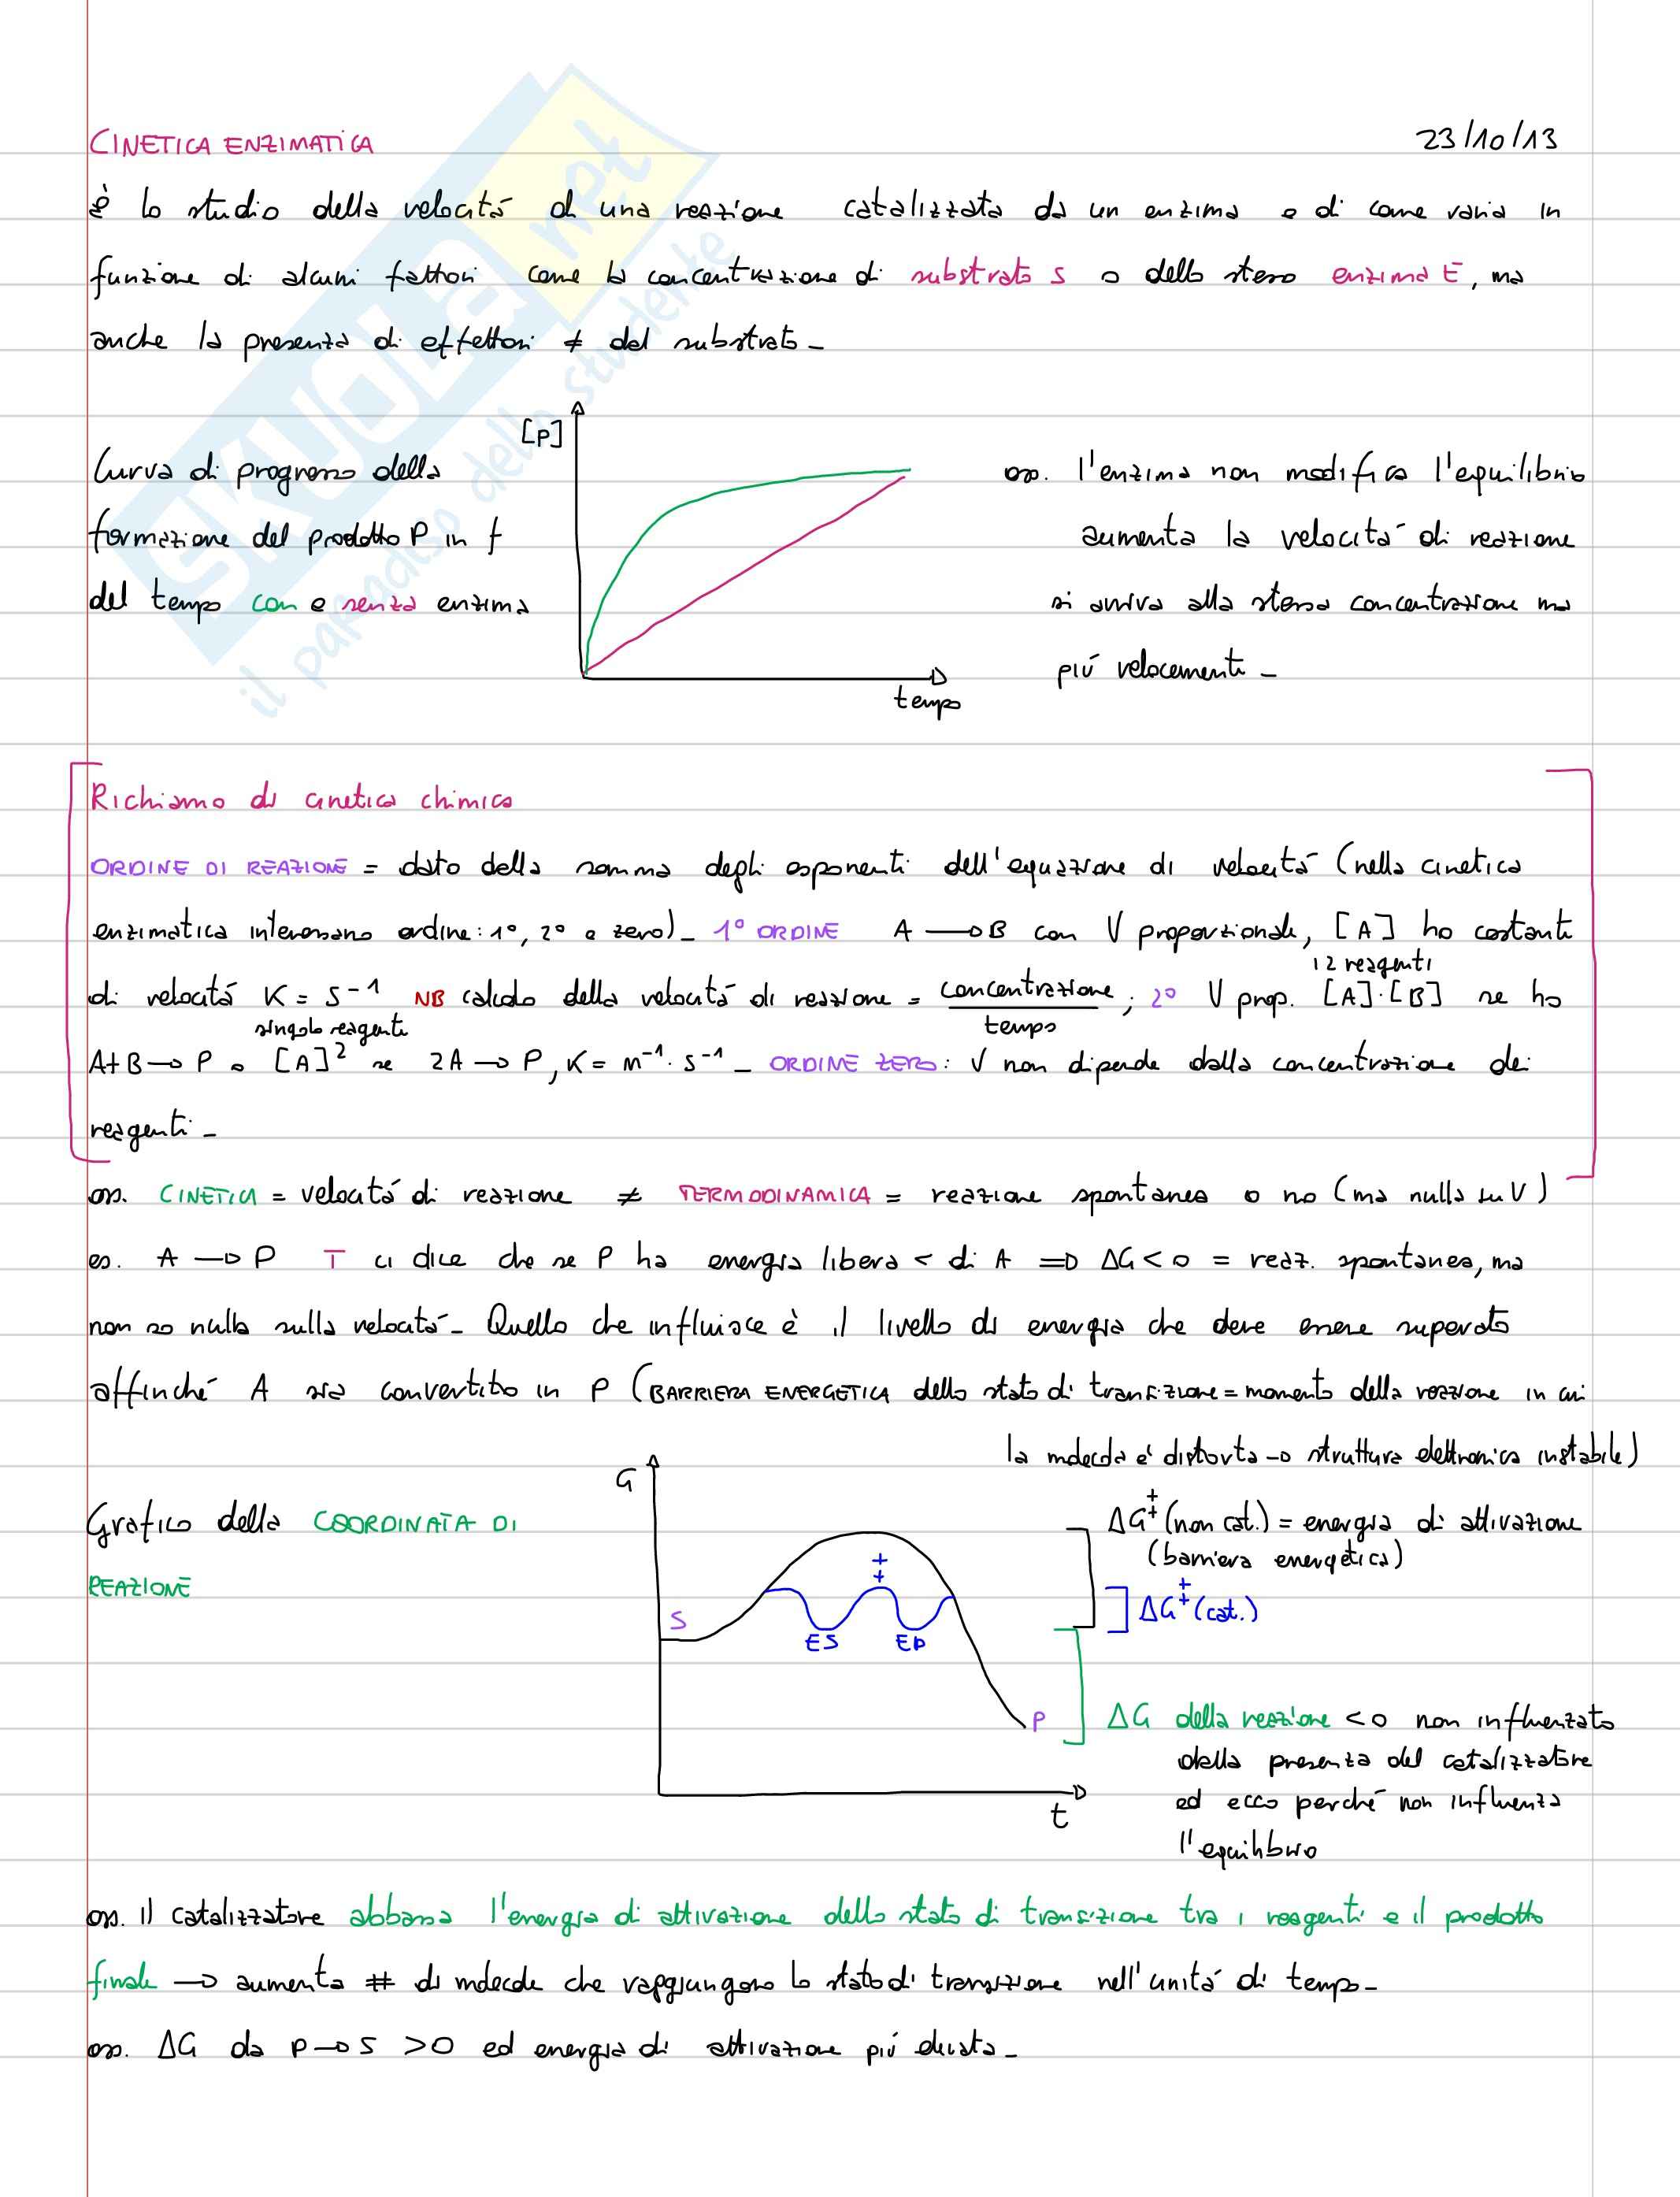 CINETICA ENZIMATICA 23/10/13
è lo studio della velocità di una reazione catalizzata da un enzima e di come varia in
funzione di alcuni fattori come la concentrazione di substrato S o dello stesso enzima E, ma
anche la presenza di effettori ≠ dal substrato_
[P]
Curva di progresso della
formazione del prodotto P in f
del tempo con e senza enzima
tempo
oss. l'enzima non modifica l'equilibrio
aumenta la velocità di reazione
si arriva alla stessa concentrazione ma
più velocemente_
Richiamo di cinetica chimica
ORDINE DI REAZIONE = dato dalla somma degli esponenti dell'equazione di velocità (nella cinetica
enzimatica interessano ordine: 1°, 2° e zero)_ 1° ORDINE A → B con V proporzionale, [A] ho costante
i 2 reagenti
di velocità K = s⁻¹ NB calcolo della velocità di reazione = concentrazione/tempo ; 2° V prop. [A]·[B] se ho
singolo reagente
A+B → P o [A]² se 2A → P, K = m⁻¹· s⁻¹ _ ORDINE ZERO: V non dipende dalla concentrazione dei
reagenti_
oss. CINETICA = velocità di reazione ≠ TERMODINAMICA = reazione spontanea o no (ma nulla su V)
es. A → P T ci dice che se P ha energia libera < di A ⇒ ΔG < 0 = reaz. spontanea, ma
non so nulla sulla velocità_ Quello che influisce è il livello di energia che deve essere superato
affinché A sia convertito in P (BARRIERA ENERGETICA dello stato di transizione = momento della reazione in cui
la molecola è distorta → struttura elettronica instabile)
Grafico della COORDINATA DI
REAZIONE
G
S
‡
ES
EP
P
t
ΔG‡ (non cat.) = energia di attivazione
(barriera energetica)
ΔG‡ (cat.)
ΔG della reazione < 0 non influenzato
dalla presenza del catalizzatore
ed ecco perché non influenza
l'equilibrio
oss. il catalizzatore abbassa l'energia di attivazione dello stato di transizione tra i reagenti e il prodotto
finale → aumenta # di molecole che raggiungono lo stato di transizione nell'unità di tempo_
oss. ΔG da P → S > 0 ed energia di attivazione più elevata_
SKUOLA.net
il paradiso dello studente